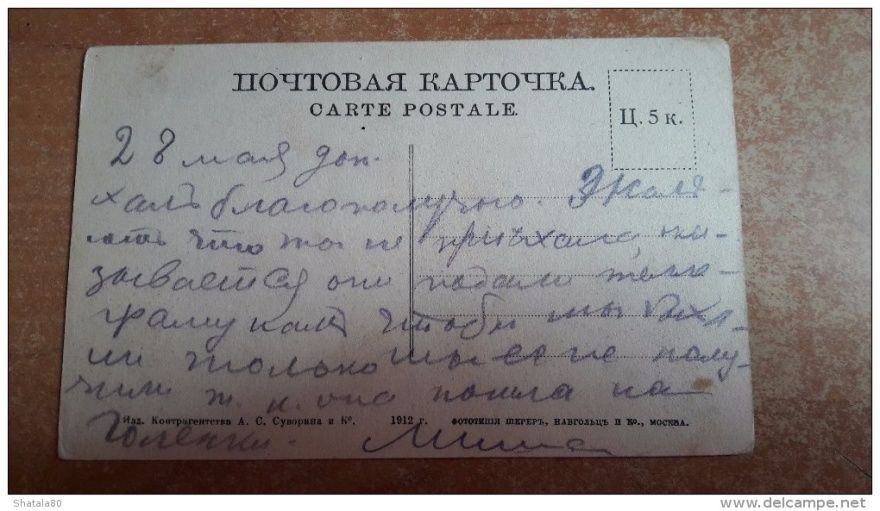 ПОЧТОВАЯ КАРТОЧКА.
CARTE POSTALE.
Ц. 5 к.
28 мая
халъ благополучно.
что ты не приѣхала
зывается они подали теле-
чтобы мы
только мы ее не полу-
чили т. к. она пошла на
Изд. Контрагентства А. С. Суворина и Ко. 1912 г. ФОТОТИПІЯ ШЕРЕРЪ, НАБГОЛЬЦЪ И Ко., МОСКВА.
Миша
Shatala80
delcampe.net